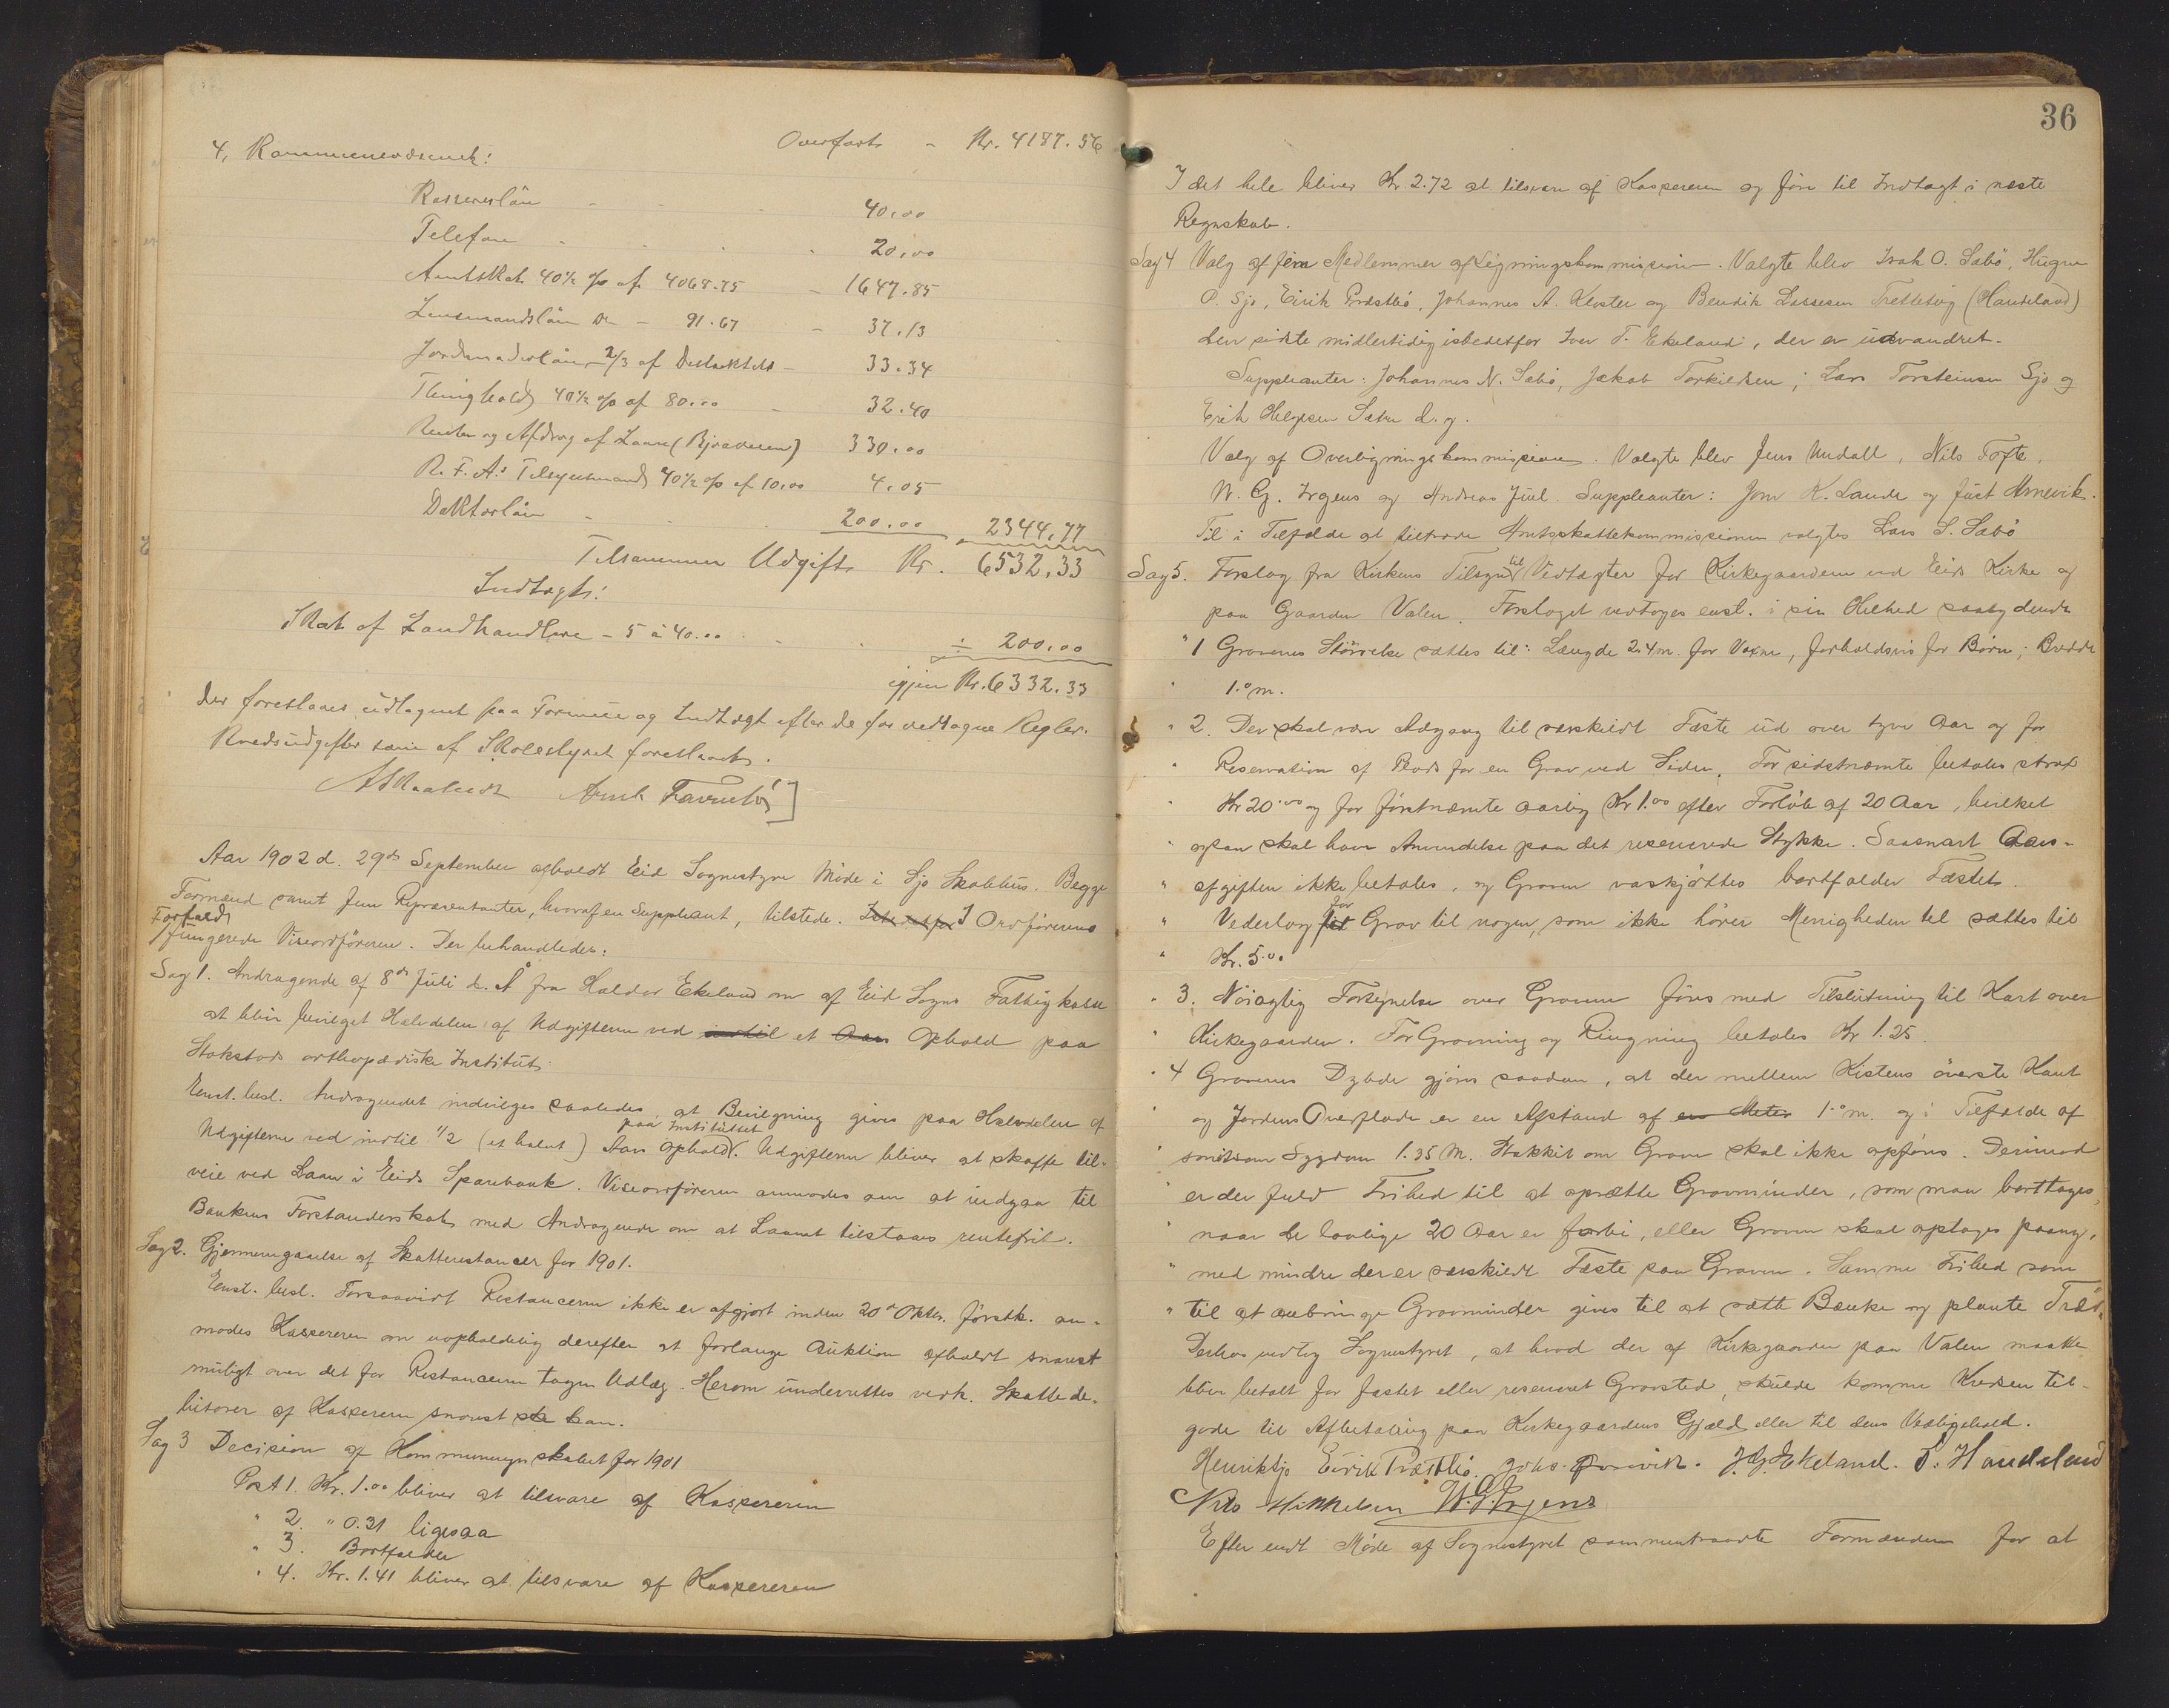 4, Kommunevæsenet: Overført - Kr. 4187.56
Kassererløn - - - 40.00
Telefon - - - - 20.00
Amtskat 40½ % af 4068.75 - 1647.85
Lensmandsløn Do - 91.67 - 37.13
Jordmoderløn, 2/3 af Distriktets - 33.34
Thinghold, 40½ % af 80.00 - 32.40
Renter og Afdrag af Laan ( 330.00
Tilsynsmand, 40½ % af 10.00 4.05
Doktorløn - - - 200.00 2344.77
Tilsammen Udgift Kr. 6532.33
Indtægt:
Skat af Landhandlere - 5 à 40.00 - - ÷ 200.00
igjen Kr. 6332.33
Der foreslaaes udlagnet paa Formue og Indtægt efter de før vedtagne Regler.
Kredsudgifter som af Skolestyret foreslaaet.
Aar 1902 d. 29de September afholdt Eid Sognestyre Møde i Sjo Skolehus. Begge
Formænd samt fem Repræsentanter, hvoraf en Suppleant, tilstede. I Ordførerens
Forfald fungerede Viseordføreren. Der behandledes:
Sag 1. Andragende af 8de Juli d. A. fra Haldor Ekeland om af Eid Sogns Fattigkasse
at blive bevilget Halvdelen af Udgifterne ved indtil et Aars Ophold paa
Stokstads orthopædiske Institut.
Enst. besl. Andragendet indvilges saaledes, at Bevilgning gives paa Halvdelen af
Udgifterne ved indtil 1/2 (et halvt) Aars Ophold paa Institüttet. Udgifterne bliver at skaffe til-
veie ved Laan i Eids Sparebank. Viseordføreren anmodes om at indgaa til
Bankens Forstanderskab med Andragende om at Laanet tilstaaes rentefrit.
Sag 2. Gjennemgaaelse af Skatterestancer for 1901.
Enst. besl. Forsaavidt Restancerne ikke er afgjort inden 20de Oktbr. førstk. an-
modes Kassereren om uopholdelig derefter at forlange Auktion afholdt snarest
muligt over det for Restancerne tagne Udlæg. Herom underrettes vedk. Skattede-
bitorer af Kassereren snarest ske kan.
Sag 3 Decision af Kommuneregnskabet for 1901
Post 1. Kr. 1.00 bliver at tilsvare af Kassereren
" 2. " 0.31 ligesaa
" 3. Bortfalder
" 4. Kr. 1.41 bliver at tilsvare af Kassereren
36
I det hele bliver Kr. 2.72 at tilsvare af Kassereren og føre til Indtægt i næste
Regnskab.
Sag 4 Valg af fem Medlemmer af Ligningskommissionen. Valgte blev Isak O. Sæbø,
O. Sjo, Eirik Præstbø, Johannes A. Kloster og Bendik Lassesen Trettevig (Handeland)
den sidste midlertidig istedetfor Iver T. Ekeland, der er udvandret.
Suppleanter: Johannes N. Sæbø, Jakob Torkildsen, Lars Torsteinsen Sjo og
Erik Helgesen Sætre d. y.
Valg af Overligningskommission. Valgte blev Jens Undall, Nils Tofte,
W. G. Irgens og Andreas Juul. Suppleanter: Jon K. Lande og Just Arnevik.
Til i Tilfælde at tiltræde Amtsskattekommissionen valgtes Lars S. Sæbø
Sag 5. Forslag fra Kirkens Tilsyn til Vedtægter for Kirkegaarden ved Eids Kirke og
paa Gaarden Valen. Forslaget vedtoges enst. i sin Helhed saalydende
" 1 Gravenes Størrelse sættes til: Længde 2.4 m. for Voxne, forholdsvis for Børn; Bredde
" 1.0 m.
" 2. Der skal være Adgang til særskildt Fæste ud over tyve Aar og for
" Reservation af Plads for en Grav ved Siden. For sidstnævnte betales strax
" Kr 20.00 og for førstnævnte aarlig Kr 1.00 efter Forløb af 20 Aar, hvilket
" ogsaa skal have Anvendelse paa det reserverede Stykke. Saasnart Aars-
" afgiften ikke betales, og Graven vanskjøttes bortfalder Fæstet.
" Vederlag for Grav til nogen, som ikke hører Menigheden til sættes til
" Kr. 5.00
" 3. Nøiagtig Fortegnelse over Gravene føres med Tilslutning til Kart over
" Kirkegaarden. For Gravning og Ringning betales Kr 1.25.
" 4 Gravenes Dybde gjøres saadan, at der mellem Kistens øverste Kant
" og Jordens Overflade er en Afstand af en Meter 1.0 m. og i Tilfælde af
" smitsom Sygdom 1.35 M. Stakkit om Graven skal ikke opføres. Derimod
" er der fuld Frihed til at opsætte Gravminder, som maa borttages,
" naar de lovlige 20 Aar er forbi, eller Graven skal optages paany,
" med mindre der er særskildt Fæste paa Graven. Samme Frihed som
" til at anbringe Gravminder gives til at sætte Bænke og plante Træer.
Derhos vedtog Sognestyret, at hvad der af Kirkegaarden paa Valen maatte
blive betalt for fæstet eller reserveret Gravsted, skulde komme Kredsen til-
gode til Afbetaling paa Kirkegaardens Gjæld eller til dens Vedligehold.
Henrik Sjo Eirik Præstbø. Johs. J. H. Ekeland. S. Handeland
Nils Mikkelsen W. G. Irgens
Efter endt Møde af Sognestyret sammentraadte Formændene for at